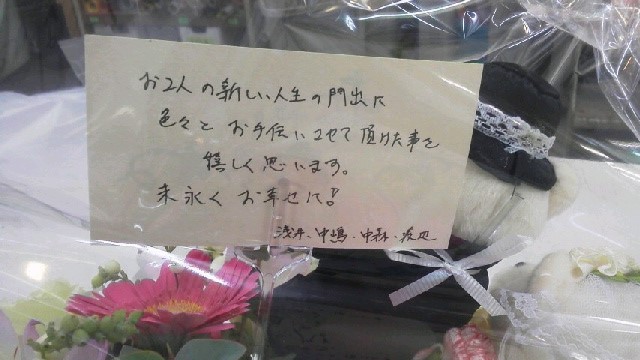 お2人の新しい人生の門出に
色々とお手伝いさせて頂けた事を
嬉しく思います。
末永くお幸せに!
浅井・中嶋・中森・渡辺